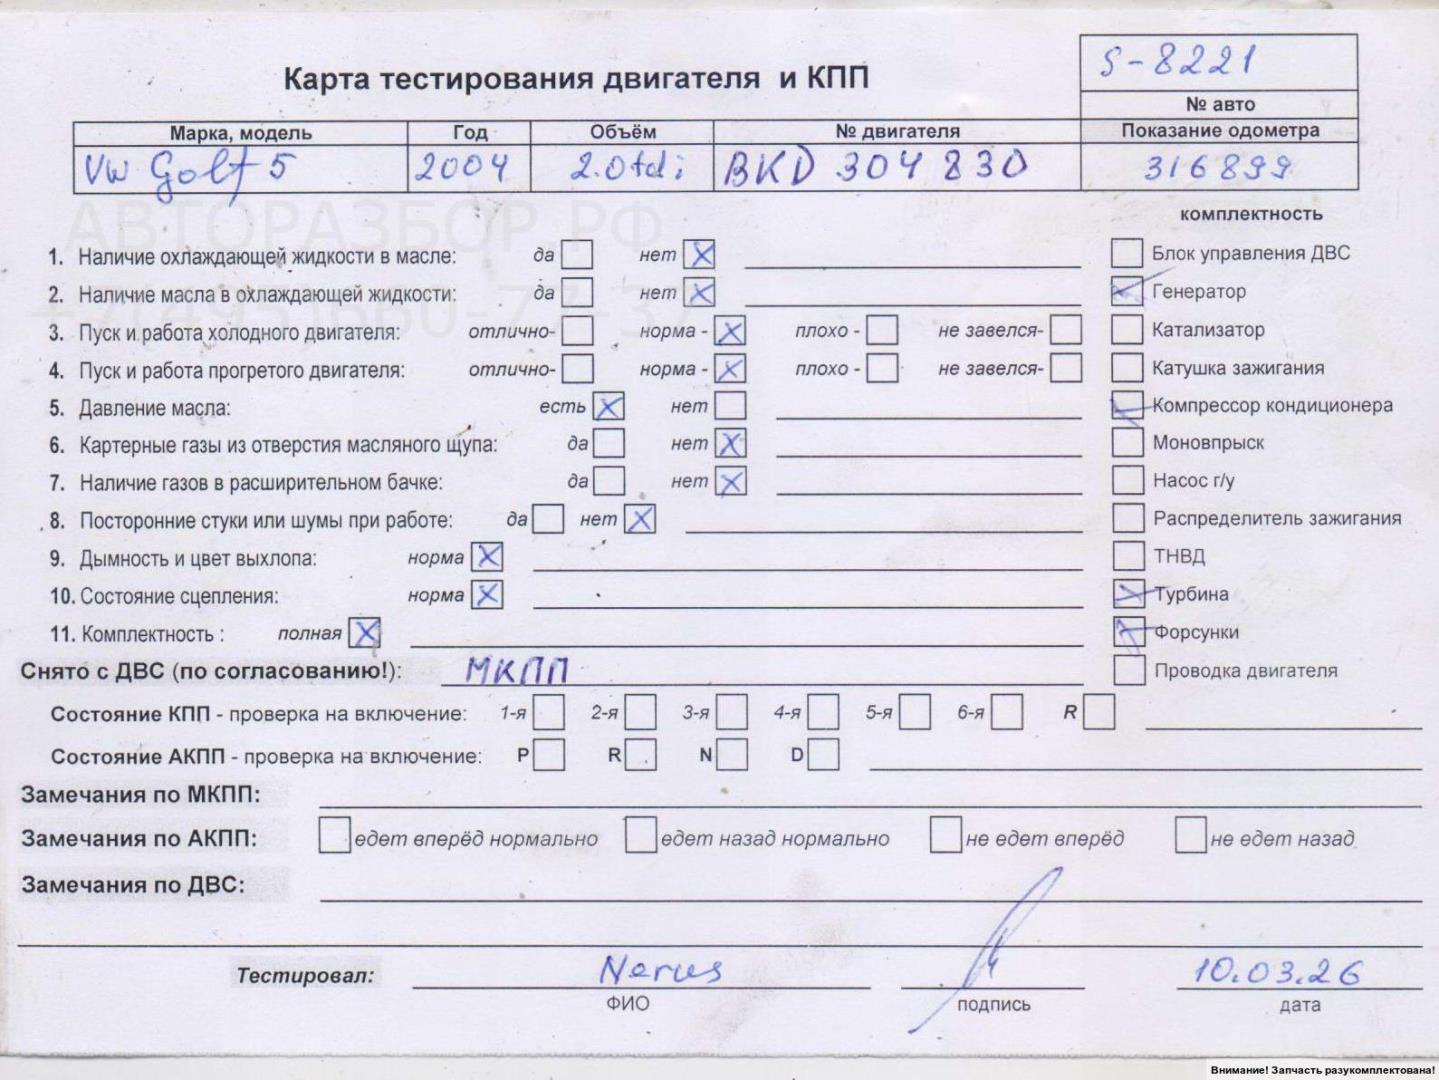 S-8221
Карта тестирования двигателя и КПП
№ авто
Марка, модель Год Объём № двигателя Показание одометра
VW Golf 5 2004 2.0tdi BKD 304 830 316899
АВТОРАЗБОР.РФ
+7(495)660-77-37
комплектность
1. Наличие охлаждающей жидкости в масле: да нет Блок управления ДВС
2. Наличие масла в охлаждающей жидкости: да нет Генератор
3. Пуск и работа холодного двигателя: отлично- норма - плохо - не завелся- Катализатор
4. Пуск и работа прогретого двигателя: отлично- норма - плохо - не завелся- Катушка зажигания
5. Давление масла: есть нет Компрессор кондиционера
6. Картерные газы из отверстия масляного щупа: да нет Моновпрыск
7. Наличие газов в расширительном бачке: да нет Насос г/у
8. Посторонние стуки или шумы при работе: да нет Распределитель зажигания
9. Дымность и цвет выхлопа: норма ТНВД
10. Состояние сцепления: норма Турбина
11. Комплектность : полная Форсунки
Снято с ДВС (по согласованию!): МКПП Проводка двигателя
Состояние КПП - проверка на включение: 1-я 2-я 3-я 4-я 5-я 6-я R
Состояние АКПП - проверка на включение: P R N D
Замечания по МКПП:
Замечания по АКПП: едет вперёд нормально едет назад нормально не едет вперёд не едет назад
Замечания по ДВС:
Тестировал: Nerus 10.03.26
ФИО подпись дата
Внимание! Запчасть разукомплектована!